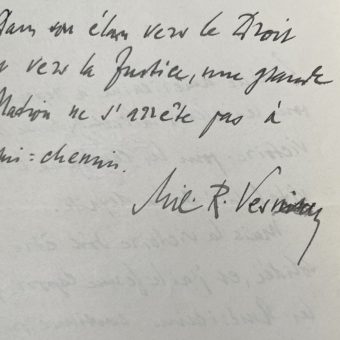 Dans son élan vers le Droit
vers la Justice, une grande
Nation ne s'arrête pas à
mi=chemin.
Mil. R. Vesnić